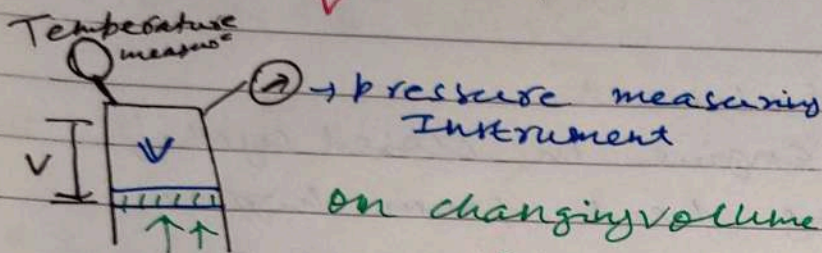 Temperature
measure
→ pressure measuring
Instrument
V
V
on changing volume